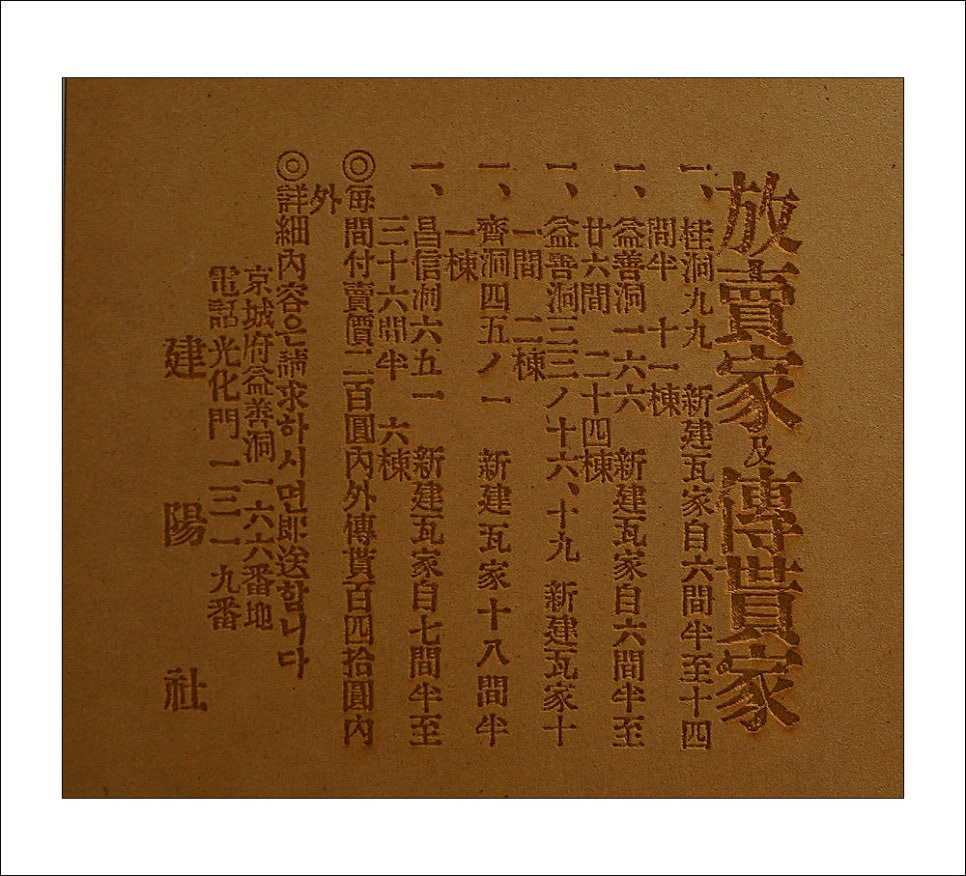 放賣家及傳貰家
一、桂洞九九 新建瓦家自六間半至十四
間半 十一棟
一、益善洞一六六 新建瓦家自六間半至
廿六間 二十四棟
一、益善洞三三ノ十六、十九 新建瓦家十
一間 二棟
一、齊洞四五ノ一 新建瓦家十八間半
一棟
一、昌信洞六五一 新建瓦家自七間半至
三十六間半 六棟
◎每間付賣價二百圓內外傳貰百四拾圓內
外
◎詳細內容은請求하시면郎送함니다
京城府益善洞一六六番地
電話光化門一三一九番
建陽社